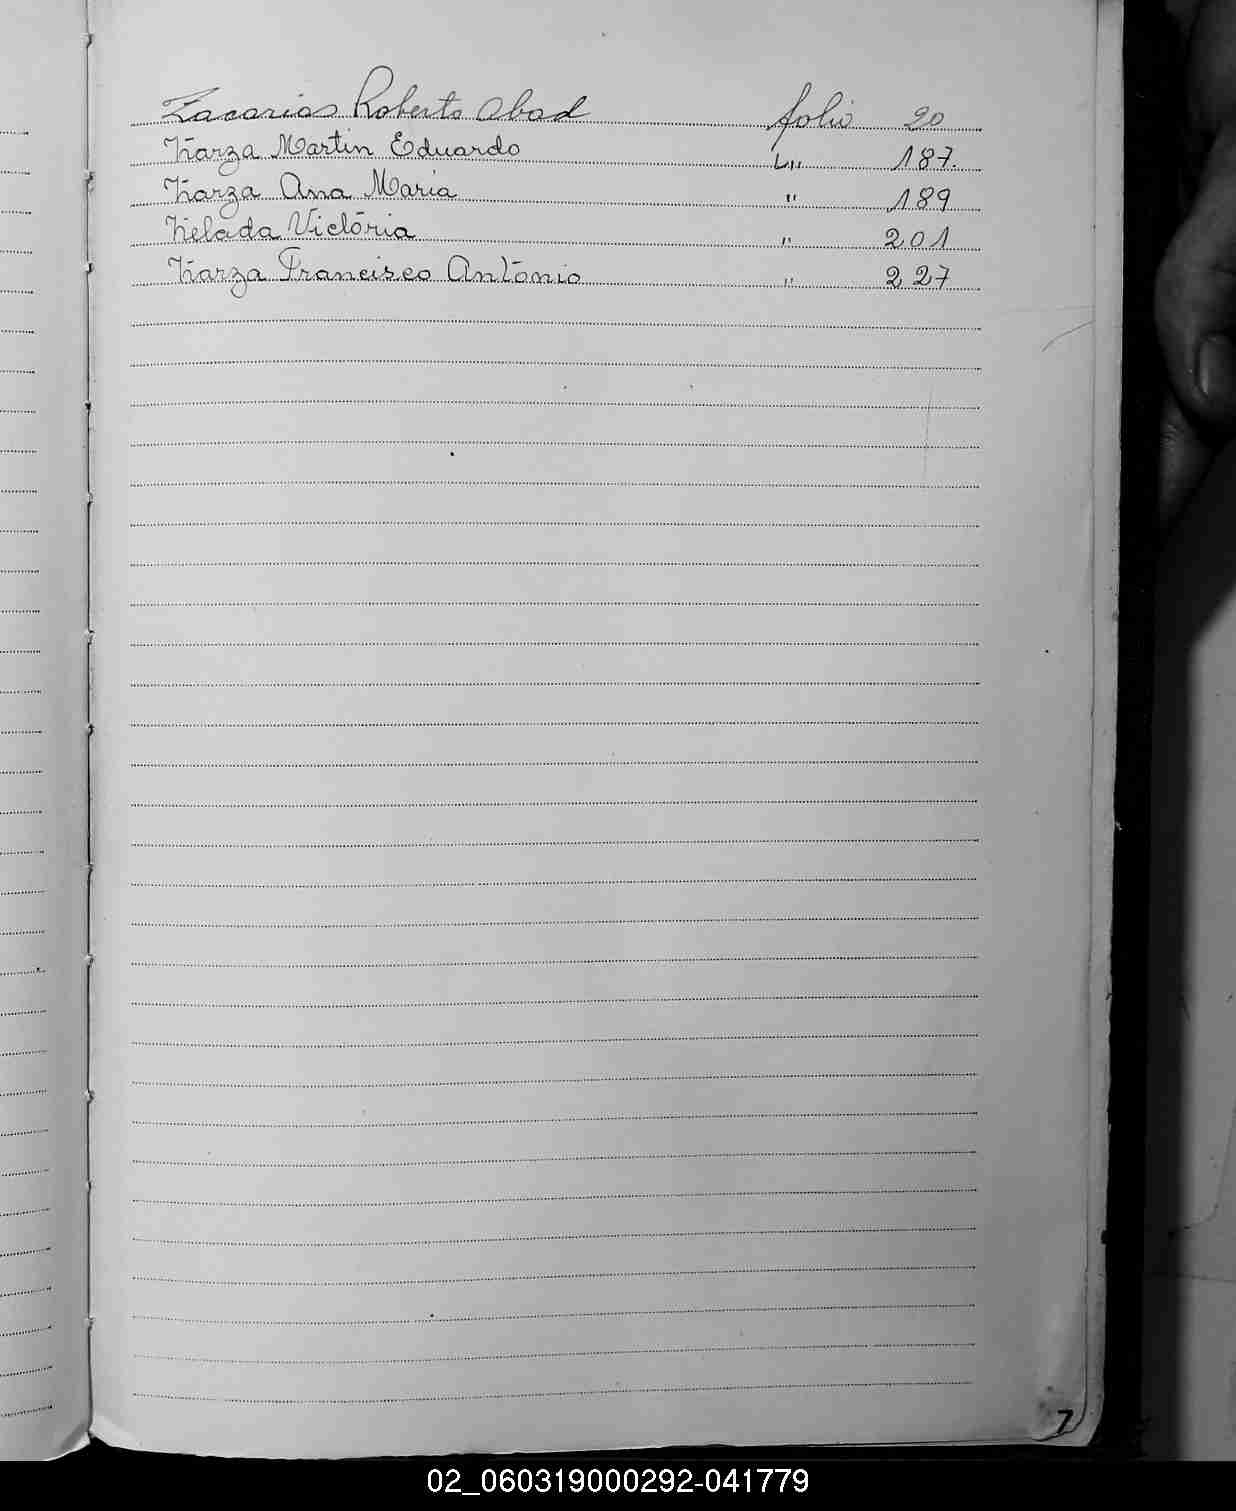 Zacarias Roberto Abad folio 20
Zarza Martin Eduardo " 187.
Zarza Ana Maria " 189
Zelada Victória " 201
Zarza Francisco António " 227
Z
02_060319000292-041779